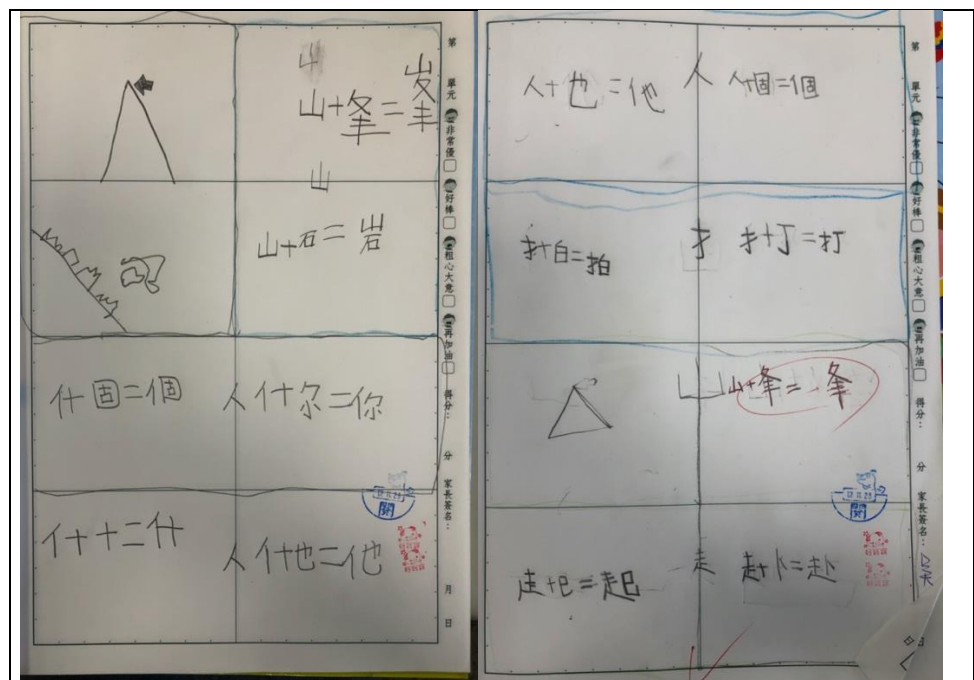 山
山+夆=峯
山
山+石=岩
亻+固=個
人 亻+尔=你
亻+十=什
人 亻+也=他
第 單元 非常優 好棒 粗心大意 再加油 得分: 分 家長簽名: 月 日
人+也=他
人 亻+固=個
扌+白=拍
扌 扌+丁=打
山 山+夆=峯
走+巳=起
走 走+卜=赴
第 單元 非常優 好棒 粗心大意 再加油 得分: 分 家長簽名:
閱
閱